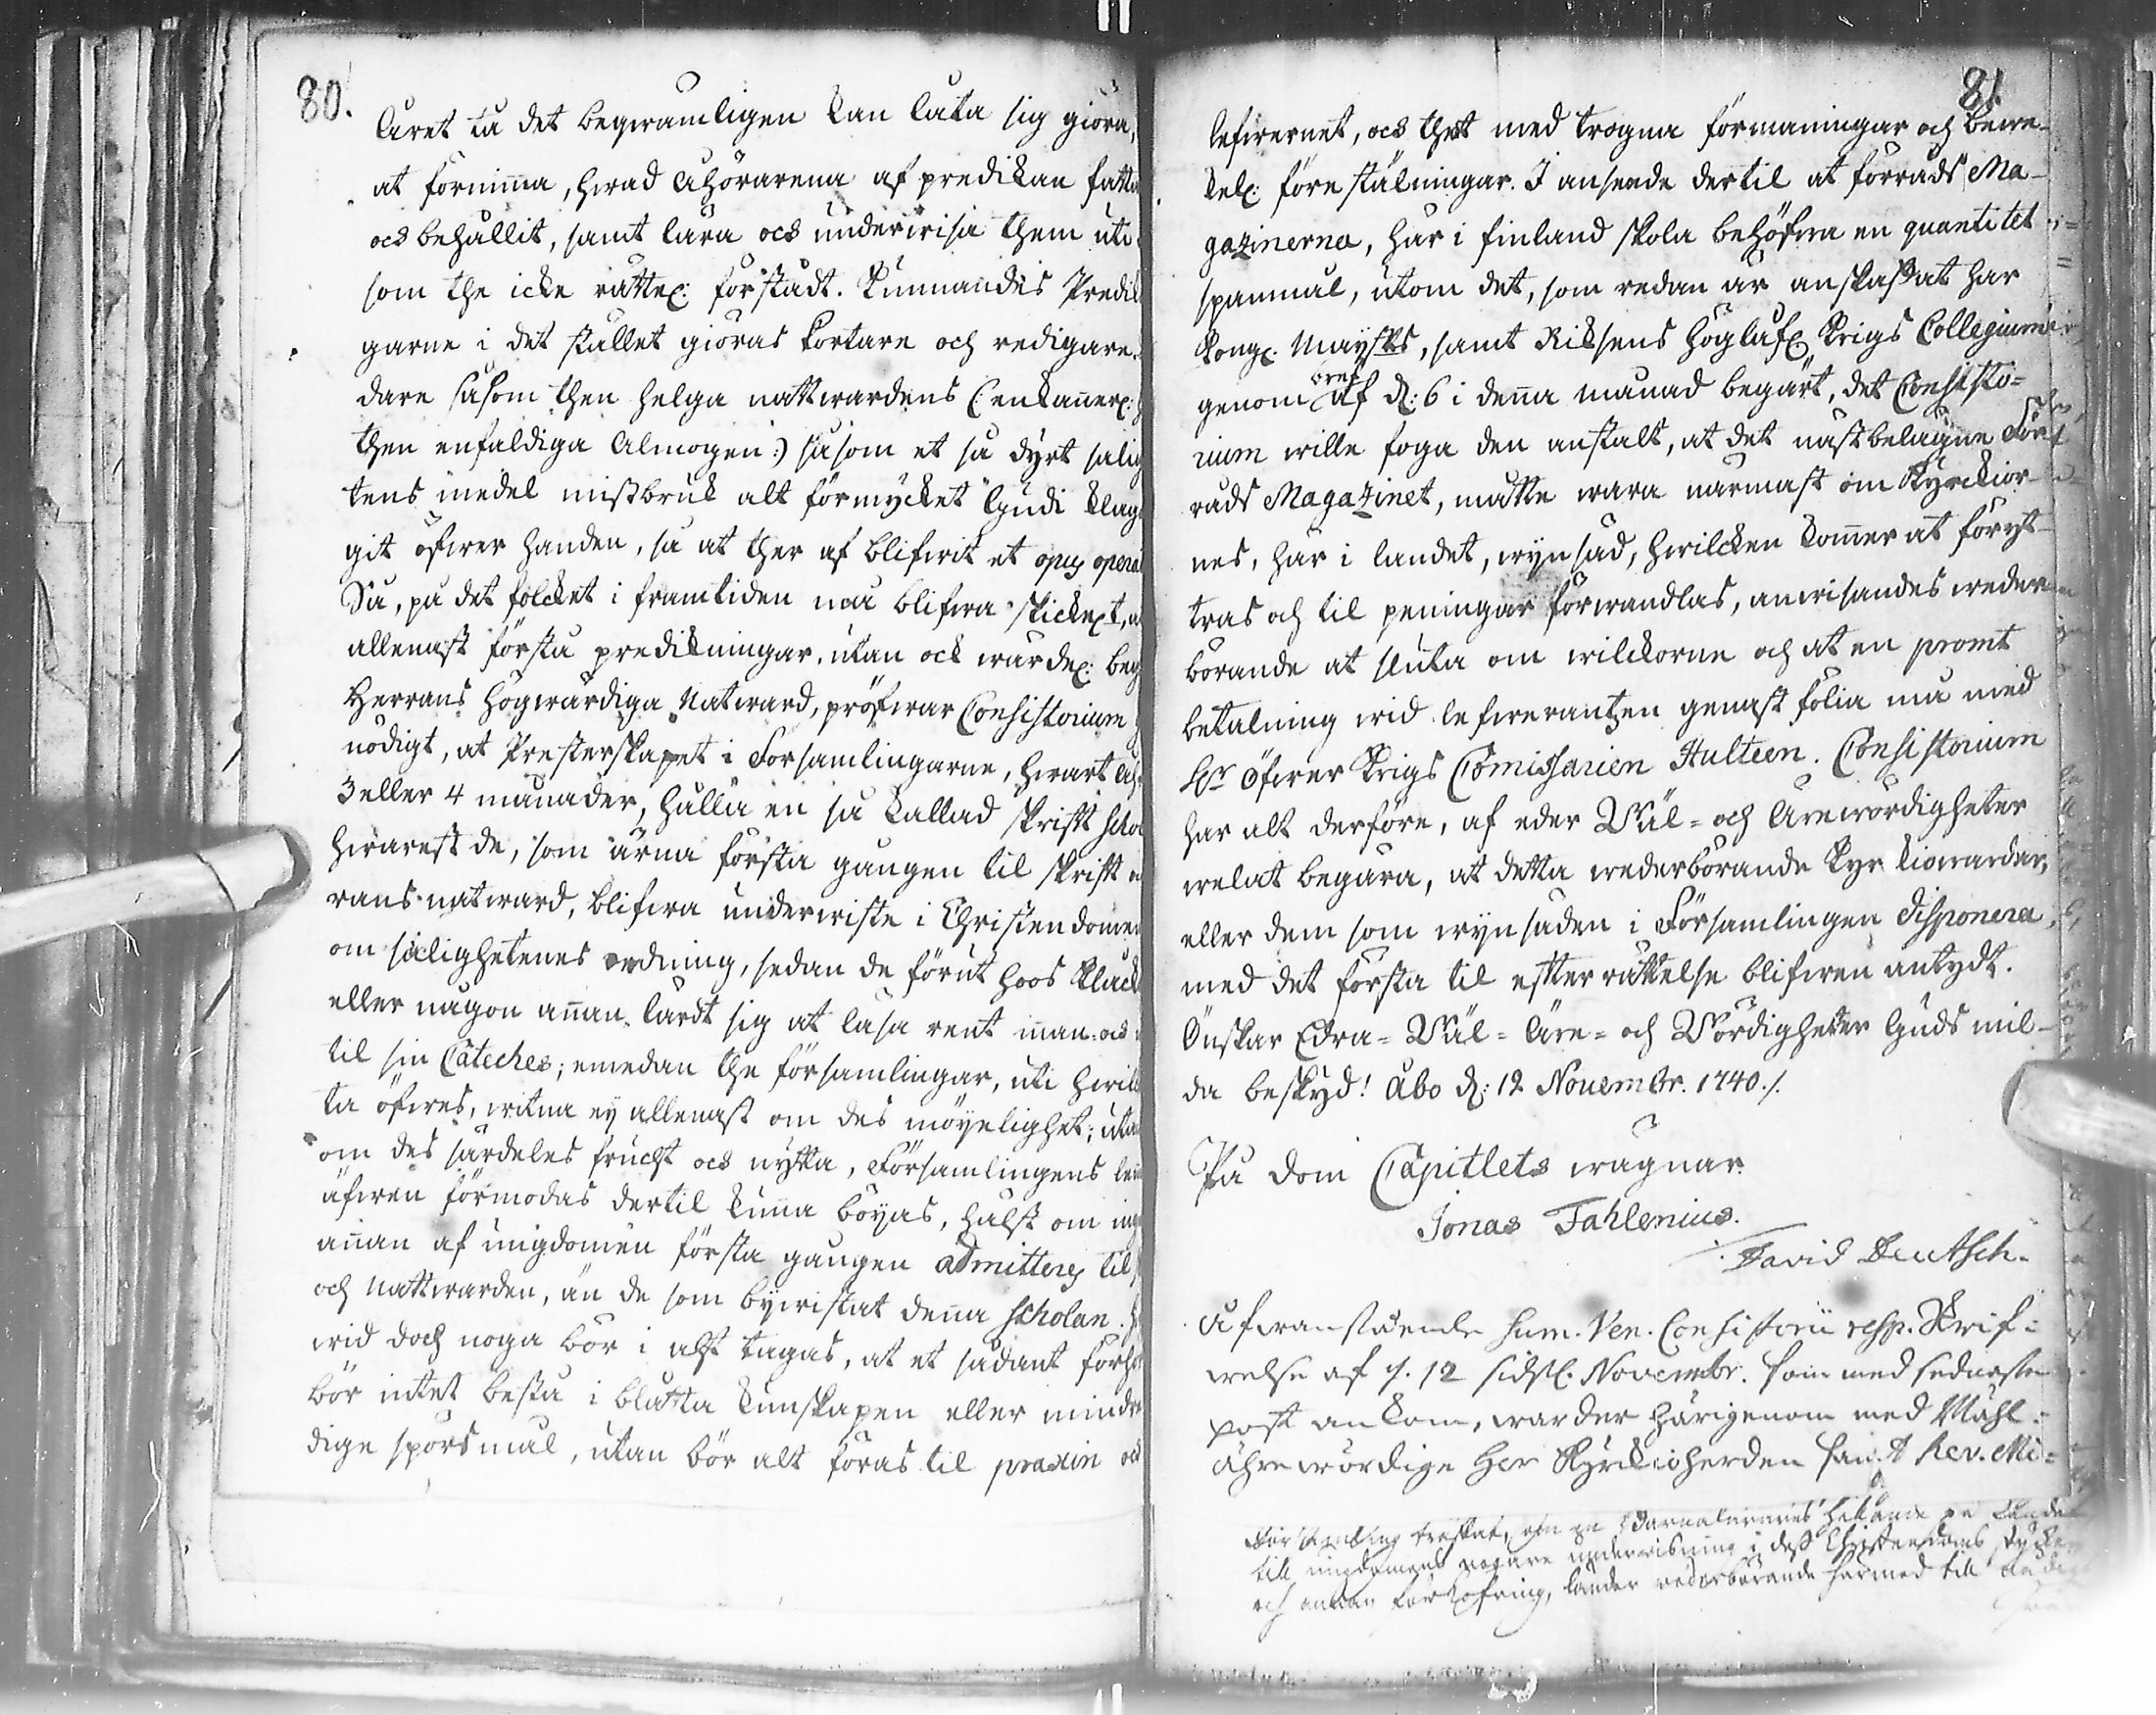 80.
året tå det beqwämligen kan låta sig giöra,
at förnimma, hwad åhörarena af predikan fatta
och behållit, samt lära och underwisa them uti
som the icke rättel: förstådt. Kunnandes Predik
garne i det stället giöras kortare och redigare.
dare såsom then helga nattwardens (: enkannerl:
then enfaldiga Almogen:) såsom et så dyrt salig
tens medel missbruk alt förmycket Gudi klag
git öfwer handen, så at ther af blifwit et opus opera
Så, på det folcket i framtiden må blifwa skickel:t, 
allenast förstå predikningar, utan ock wärdel: beg
Herrans högwärdiga Natward, pröfwar Consistorium
nödigt, at Presterskapet i Församlingarne, hwart åhr
3 eller 4 månader, hålla en så kallad skrift schol
hwarest de, som ärna första gången til skrift
rans natward, blifwa underwiste i Christendomen
om salighetenes ordning, sedan de förut hoos Klåck
eller någon annan lärdt sig at läsa rent innan och
til sin Cateches; emedan the församlingar, uti hwilk
ta öfwes, witna ey allenast om des möyelighet; utan
om des särdeles frucht och nytta, Församlingens
äfwen förmodas dertil kunna böyas, hälst om ing
annan af ungdomen första gången admitteres til
och Nattwarden, än de som bywistat denna scholan.
wid doch noga bör i akt tagas, at et sådant förhör
bör intet bestå i blåtta kunskapen eller mindre
dige spörsmål, utan bör alt föras til praxin och
81.
lefwernet, och thet med trogna förmaningar och bewe-
kel: föreställningar. I anseende dertil at förråds Ma-
gazinerna, här i finland skola behöfwa en quantitet
spannmål, utom det, som redan är anskaffat har
Kongl. Mayst:s, samt Riksens höglofl. Krigs Collegium
genom bref af d: 6 i denna månad begärt, det Consisto-
rium wille foga den anstalt, at det nästbelägne För-
råds Magazinet, måtte wara närmast om Kyrckior-
nes, här i landet, tyn säd, hwilcken kommer at föryt-
tras och til peningar förwandlas, anwisandes weder
börande at sluta om wilckorne och at en promt
betalning wid lefwerantzen genast fölia må med
H:r Öfwer Krigs Comissarien Hulteen. Consistorium
har alt derföre, af eder Wäl- och Ärewördigheter
welat begära, at detta wederbörande Kyrkiowärdar,
eller dem som tyn säden i Församlingen disponera,
med det första til efterrättelse blifwen antydt.
Önskar Edra- Wäl- Äre- och Wördigheter Guds mil-
da beskyd! Åbo d: 12 Novembr. 1740./.
På Dom Capitlets wägnar.
Jonas Fahlenius.
David Deutsch.
Åfwanstående Sum. Ven. Consistorii resp. Skrif-
welse af d. 12 sidstl. Novembr. som med sednaste
post ankom, warder härigenom med
ährewördige Herr Kyrckioherden samt Rev. Mi-
till ungdomens nogare underwisning i dess Christendoms stycken
och annan förkofring, länder wederbörande härmed till